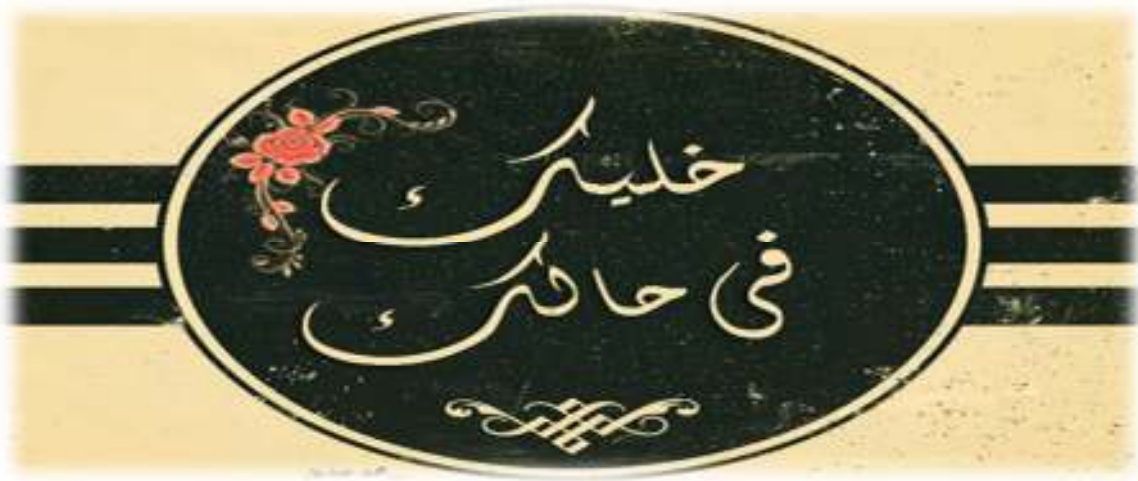 خليك
في حالك